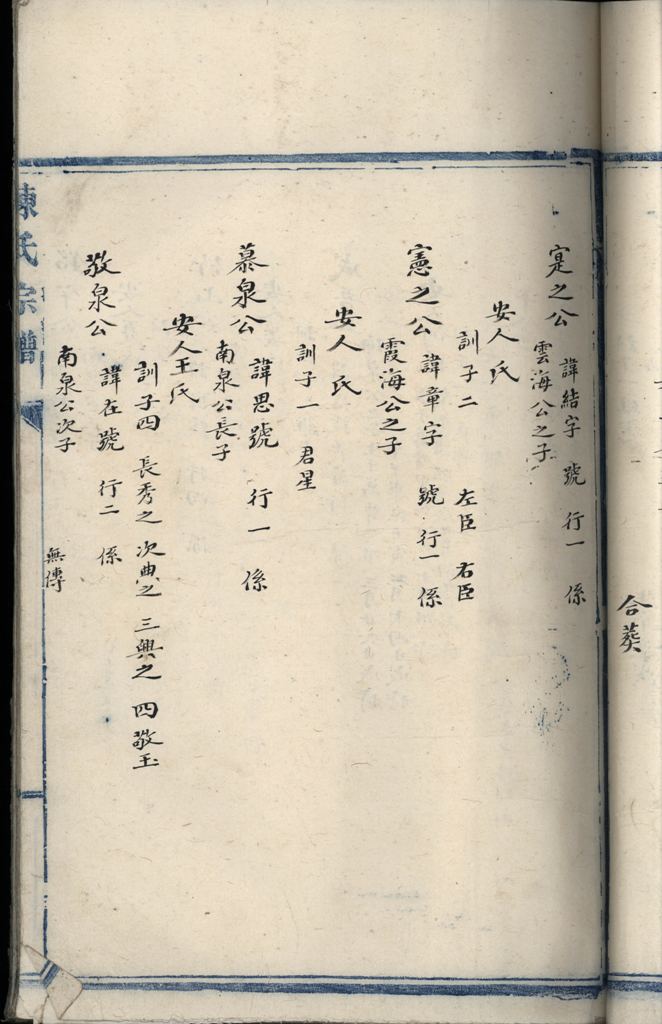 合葬
寔之公 諱結字 號 行一 係
雲海公之子
安人 氏
訓子二 左臣 右臣
憲之公 諱章字 號 行一 係
霞海公之子
安人 氏
訓子一 君星
慕泉公 諱思號 行一 係
南泉公長子
安人王氏
訓子四 長秀之 次典之 三興之 四敬玉
敬泉公 諱在號 行二 係
南泉公次子 無傳
陳氏宗譜